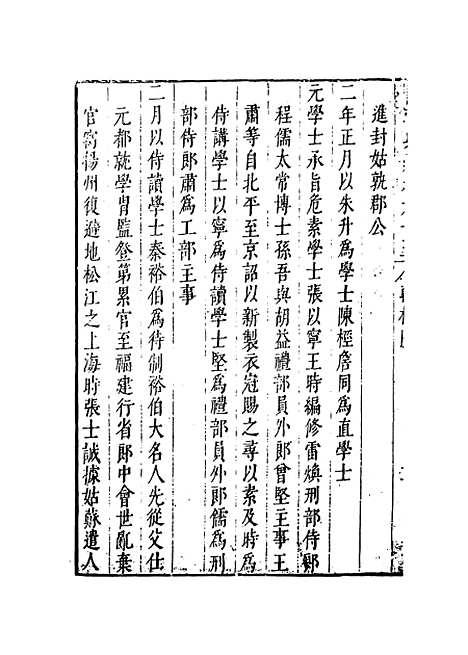 進封姑孰郡公
二年正月以朱升爲學士陳桱詹同爲直學士
元學士承旨危素學士張以寧王時編修雷煥刑部侍郎
程儒太常博士孫吾與胡益禮部員外郎曾堅主事王
肅等自北平至京詔以新製衣冠賜之尋以素及時爲
侍講學士以寧爲侍讀學士堅爲禮部員外郎儒爲刑
部侍郎肅爲工部主事
二月以侍讀學士秦裕伯爲待制裕伯大名人先從父仕
元都就學胄監登第累官至福建行省郎中會世亂棄
官寓揚州復避地松江之上海時張士誠據姑蘇遣人